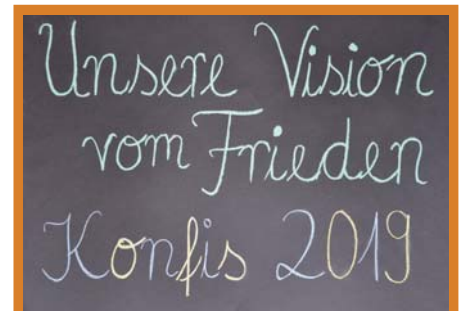 Unsere Vision
vom Frieden
Konfis 2019